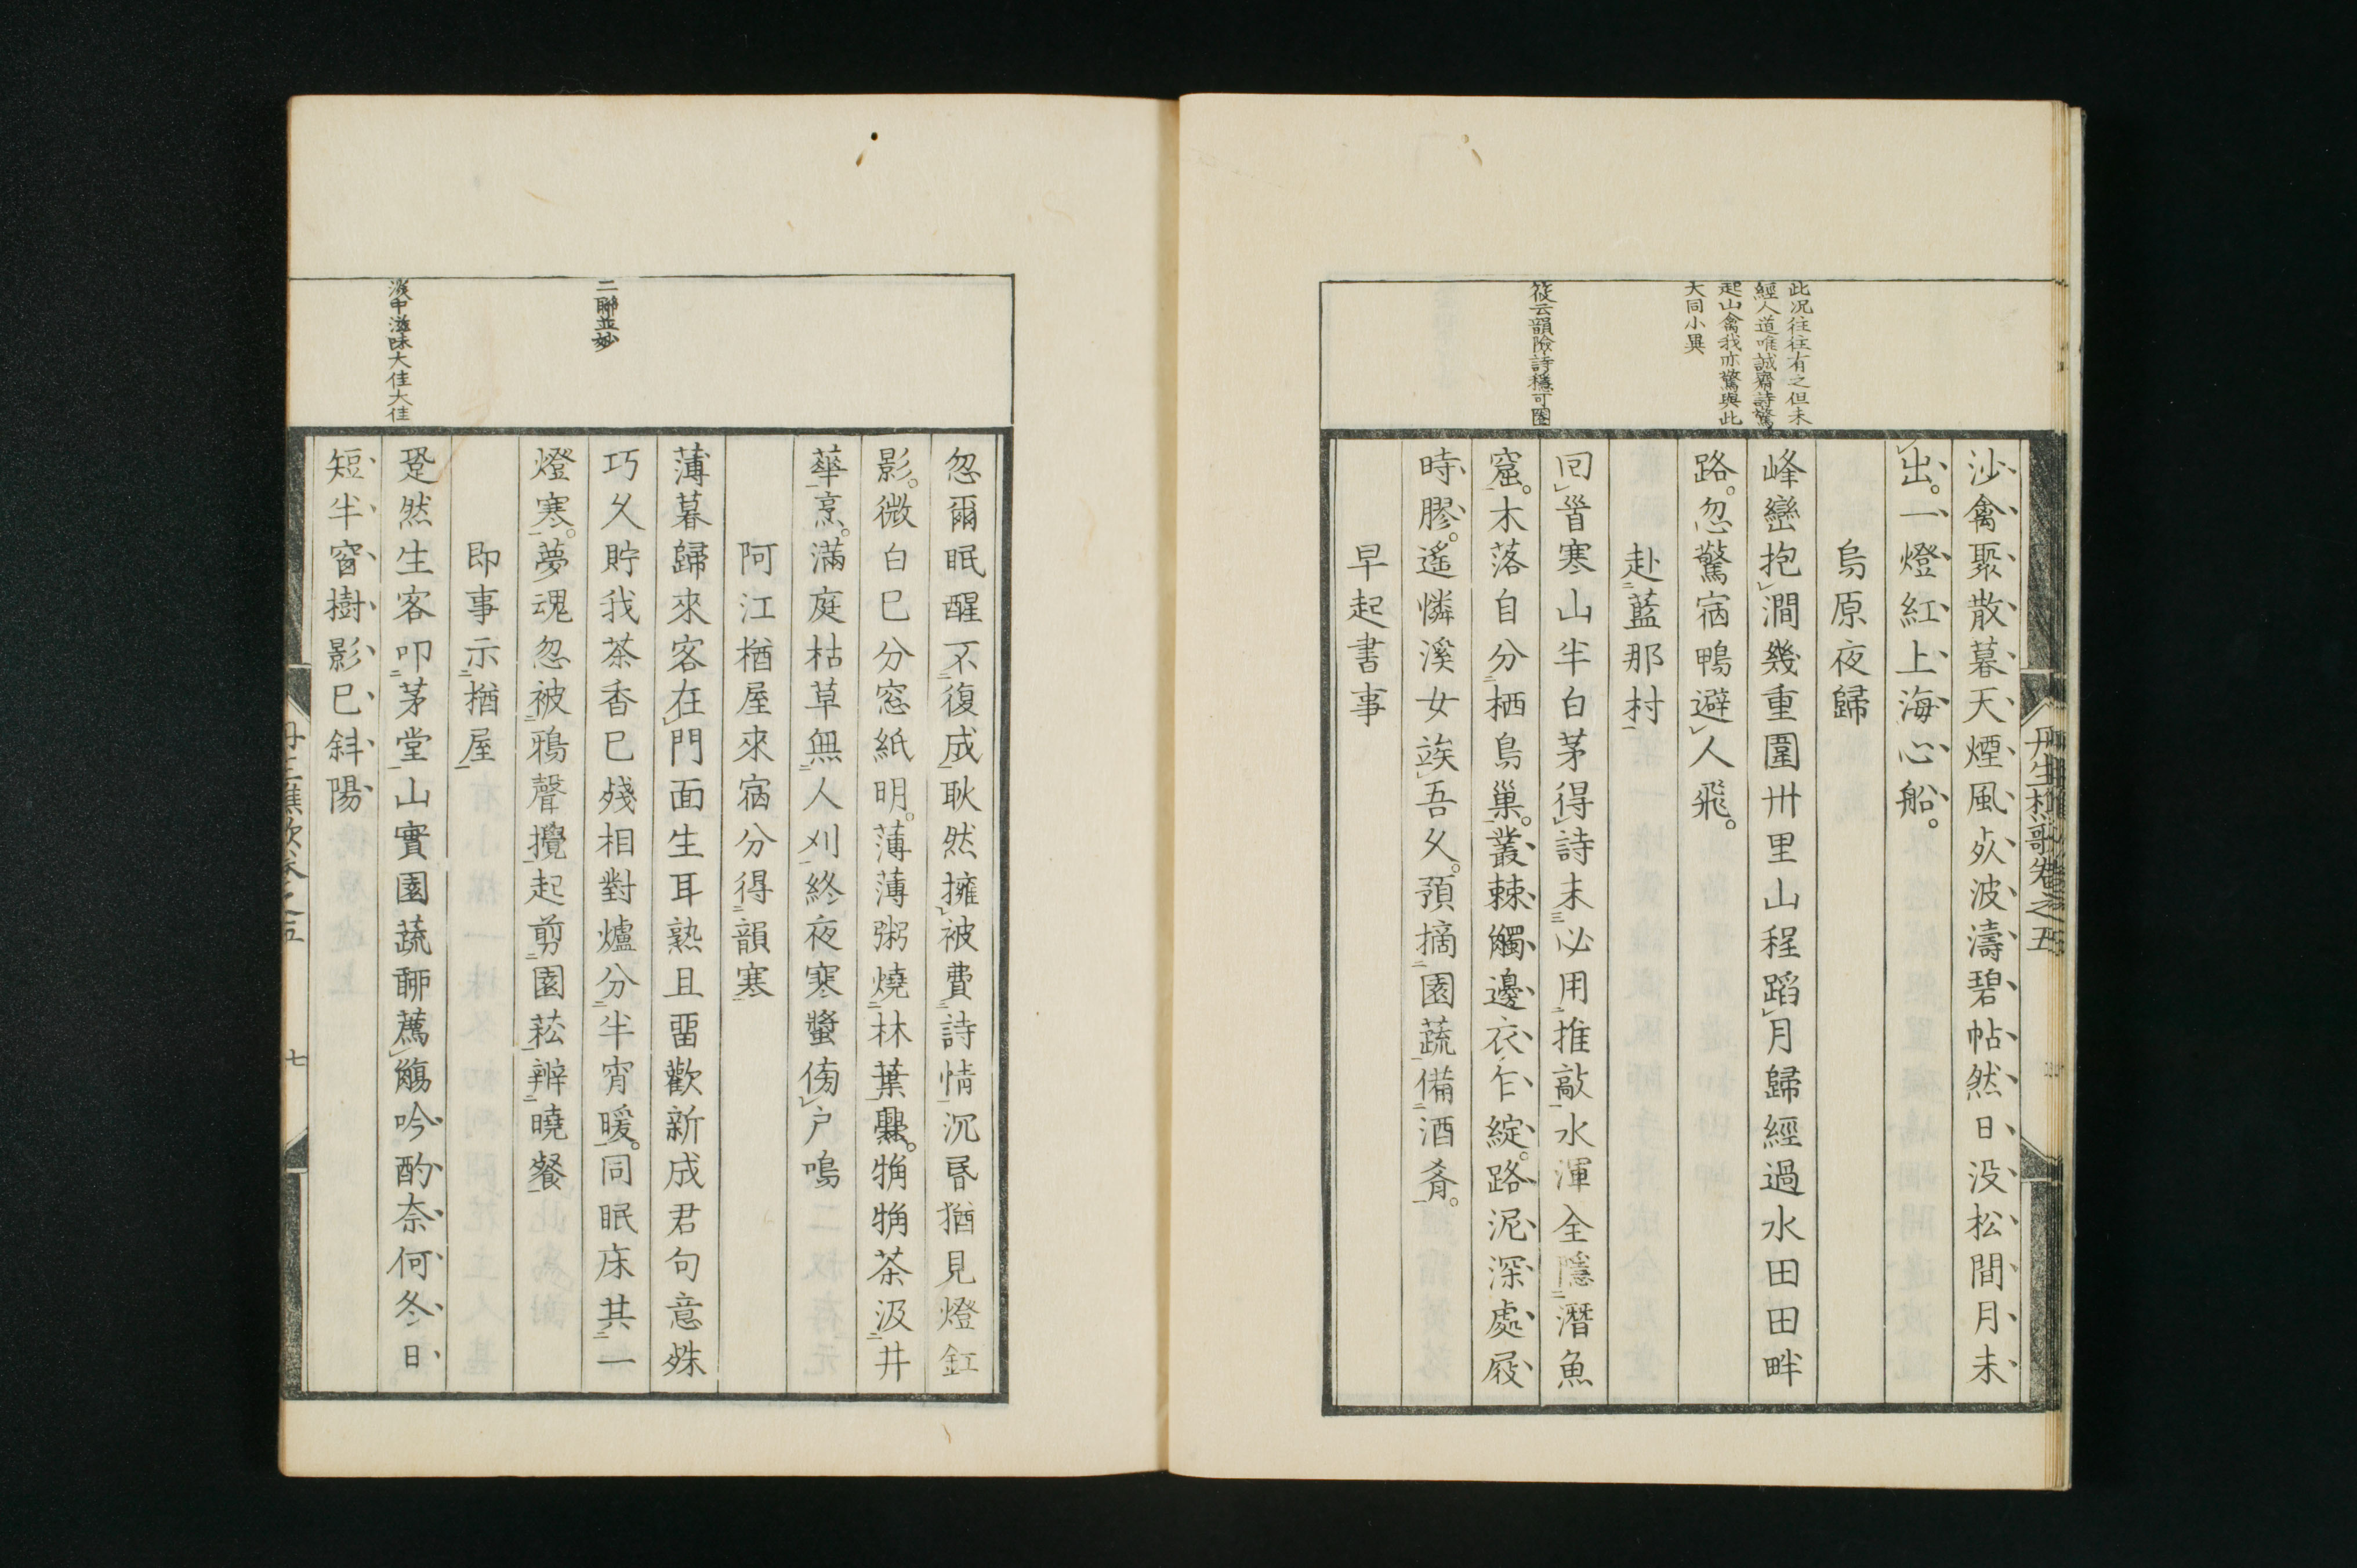 此況往往有之但未
經人道唯誠齋詩驚
起山禽我亦驚與此
大同小異
筱云韻險詩穩可圈
丹生樵歌卷之五
沙禽聚散暮天煙風㸃波濤碧帖然日没松間月未
出。一燈紅上海心船。
烏原夜歸
峰巒抱澗幾重圍卅里山程蹈月歸經過水田田畔
路。忽驚宿鴨避人飛。
赴藍那村
回首寒山半白茅得詩未必用推敲水渾全隱潛魚
窟。木落自分栖鳥巢。叢棘觸邊衣乍綻。路泥深處屐
時膠。遙憐溪女竢吾久。預摘園蔬備酒肴。
早起書事
二聯並妙
淡中滋味大佳大佳
忽爾眠醒不復成耿然擁被費詩情沉昏猶見燈釭
影。微白已分窓紙明。薄薄粥燒林葉爨。觕觕茶汲井
華烹。滿庭枯草無人刈終夜寒螿傍戶鳴
阿江楢屋來宿分得韻寒
薄暮歸來客在門面生耳熟且留歡新成君句意殊
巧久貯我茶香已殘相對爐分半宵暖。同眠床共一
燈寒。夢魂忽被鴉聲攪起剪園菘辨曉餐
即事示楢屋
跫然生客叩茅堂山實園蔬聊薦觴吟酌奈何冬日
短半窗樹影已斜陽
七